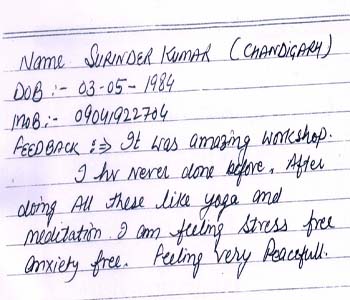 Name SURINDER KUMAR (CHANDIGARH)
DOB :- 03-05-1984
MOB :- 09041922704
FEEDBACK :⇒ It was amazing workshop.
I hv never done before. After
doing All these like yoga and
meditation I am feeling stress free
anxiety free. Feeling very Peacefull.